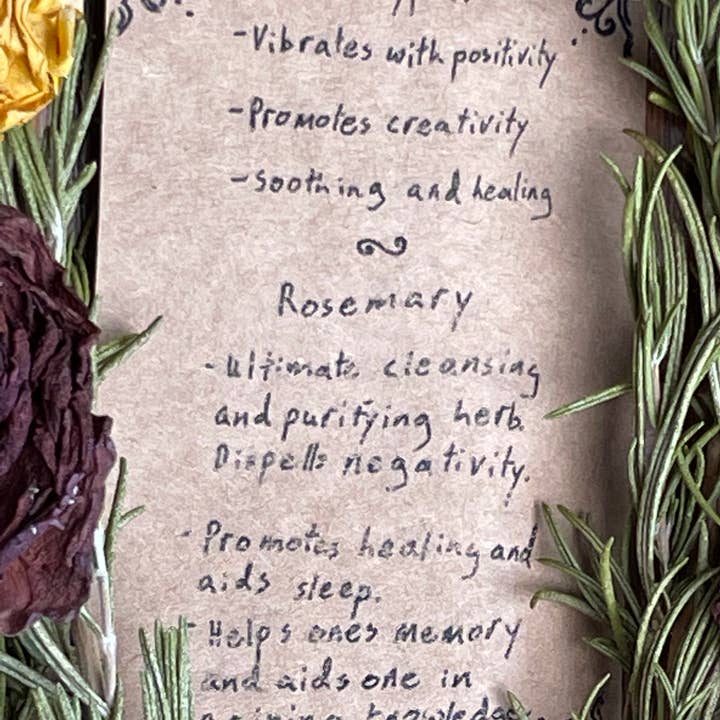 -Vibrates with positivity
-Promotes creativity
-Soothing and healing
Rosemary
-Ultimate cleansing
and purifying herb.
Dispells negativity.
-Promotes healing and
aids sleep.
-Helps ones memory
and aids one in
gaining knowledge